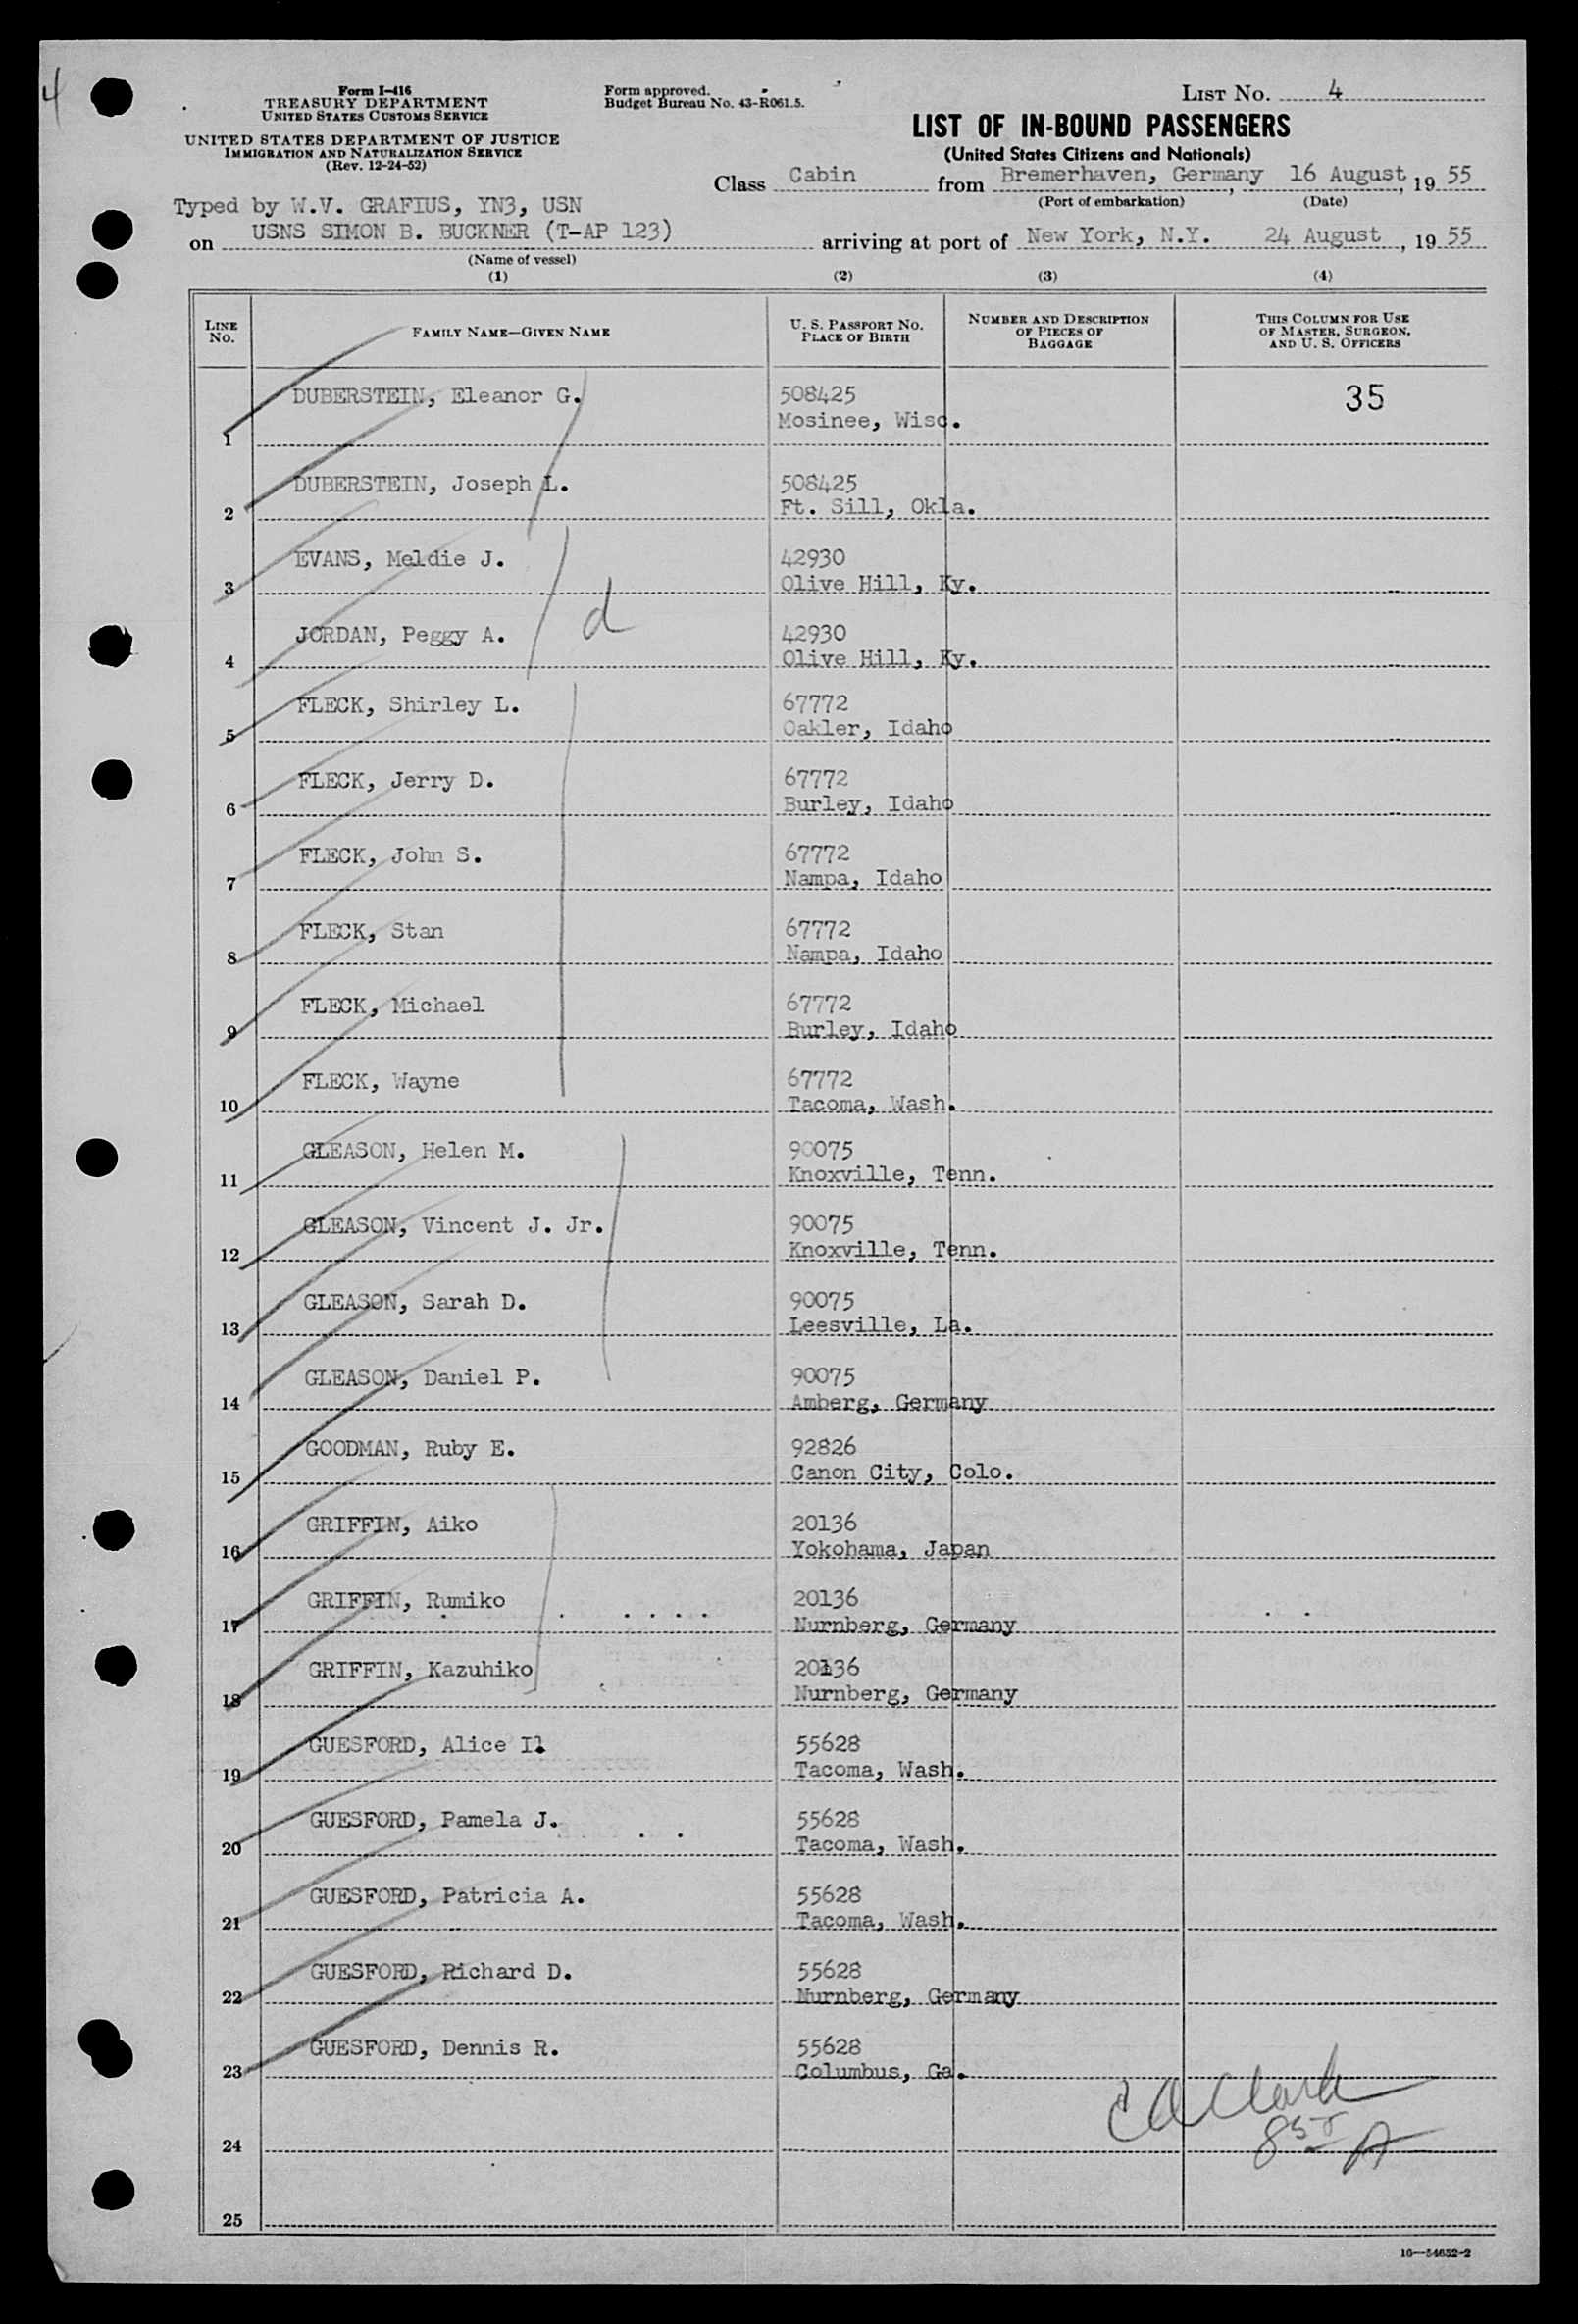 4
Form I-416
TREASURY DEPARTMENT
UNITED STATES CUSTOMS SERVICE
UNITED STATES DEPARTMENT OF JUSTICE
IMMIGRATION AND NATURALIZATION SERVICE
(Rev. 12-24-52)
Form approved.
Budget Bureau No. 43-R061.5.
LIST NO. 4
LIST OF IN-BOUND PASSENGERS
(United States Citizens and Nationals)
Class Cabin from Bremerhaven, Germany, 16 August, 19 55
(Port of embarkation) (Date)
Typed by W.V. GRAFIUS, YN3, USN
on USNS SIMON B. BUCKNER (T-AP 123) arriving at port of New York, N.Y. 24 August, 19 55
(Name of vessel)
(1) (2) (3) (4)
LINE NO. FAMILY NAME—GIVEN NAME U. S. PASSPORT NO. PLACE OF BIRTH NUMBER AND DESCRIPTION OF PIECES OF BAGGAGE THIS COLUMN FOR USE OF MASTER, SURGEON, AND U. S. OFFICERS
DUBERSTEIN, Eleanor G. 508425 35
1 Mosinee, Wisc.
DUBERSTEIN, Joseph L. 508425
2 Ft. Sill, Okla.
EVANS, Meldie J. 42930
3 Olive Hill, Ky.
d
JORDAN, Peggy A. 42930
4 Olive Hill, Ky.
FLECK, Shirley L. 67772
5 Oakler, Idaho
FLECK, Jerry D. 67772
6 Burley, Idaho
FLECK, John S. 67772
7 Nampa, Idaho
FLECK, Stan 67772
8 Nampa, Idaho
FLECK, Michael 67772
9 Burley, Idaho
FLECK, Wayne 67772
10 Tacoma, Wash.
GLEASON, Helen M. 90075
11 Knoxville, Tenn.
GLEASON, Vincent J. Jr. 90075
12 Knoxville, Tenn.
GLEASON, Sarah D. 90075
13 Leesville, La.
GLEASON, Daniel P. 90075
14 Amberg, Germany
GOODMAN, Ruby E. 92826
15 Canon City, Colo.
GRIFFIN, Aiko 20136
16 Yokohama, Japan
GRIFFIN, Rumiko 20136
17 Nurnberg, Germany
GRIFFIN, Kazuhiko 20136
18 Nurnberg, Germany
GUESFORD, Alice I. 55628
19 Tacoma, Wash.
GUESFORD, Pamela J. 55628
20 Tacoma, Wash.
GUESFORD, Patricia A. 55628
21 Tacoma, Wash.
GUESFORD, Richard D. 55628
22 Nurnberg, Germany
GUESFORD, Dennis R. 55628
23 Columbus, Ga.
Clark
24
25
16—54652-2